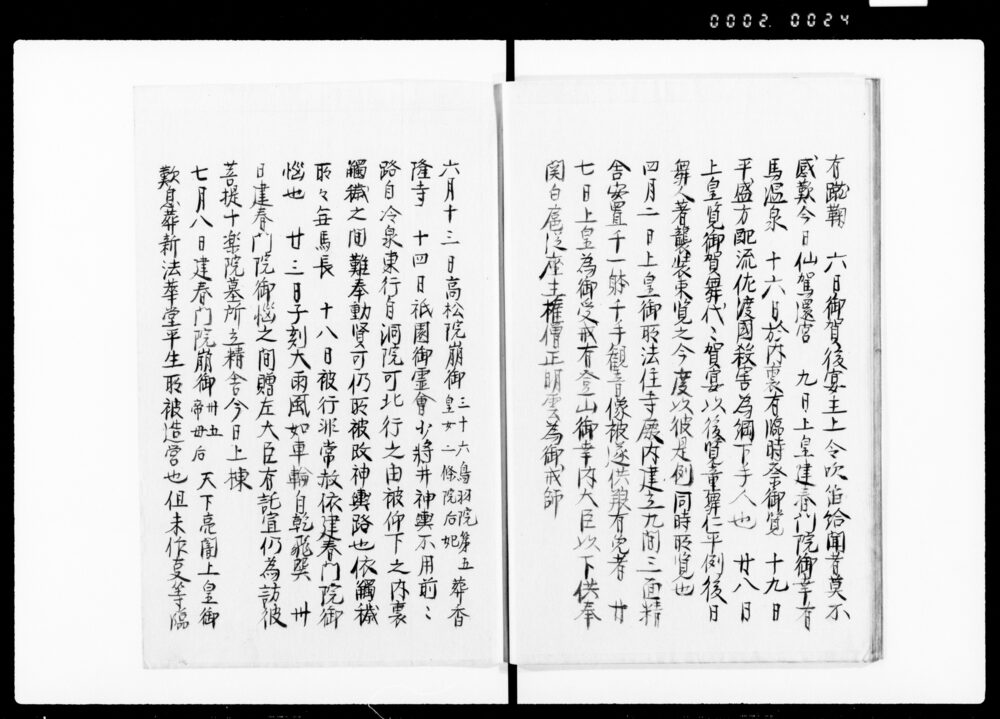 0002.0024
有蹴鞠 六日御賀後宴主上令吹笛給聞者莫不
感歎今日仙駕還宮 九日上皇建春門院御幸有
馬温泉 十六日於内裏有臨時祭御覧 十九日
平盛方配流佐渡國殺害為綱下手人也 廿八日
上皇覧御賀舞代〻賀宴以後覧童舞仁平例後日
舞人著襲装束覧之今度以彼是例同時所覧也
四月二日上皇御所法住寺殿内建立九間三面精
舎安置千一躰千手観音像被遂供養有児者 廿
七日上皇為御受戒有登山御幸内大臣以下供奉
関白扈従座主権僧正明雲為御戒師
六月十三日高松院崩御三十六鳥羽院第五皇女二條院后妃葬香
隆寺 十四日祇園御霊會少将井神輿不用前〻
路自冷泉東行自洞院可北行之由被仰下之内裏
觸穢之間難奉動賢可仍所被改神輿路也依觸穢
所々毎馬長 十八日被行非常赦依建春門院御
惱也 廿三日子刻大雨風如車輪自乾飛巽 廿
日建春門院御惱之間贈左大臣有託宣仍為訪彼
菩提十楽院墓所立精舎今日上棟
七月八日建春門院崩御卅五帝母后 天下亮闇上皇御
歎息葬新法華堂平生所被造営也但未作畢等臨